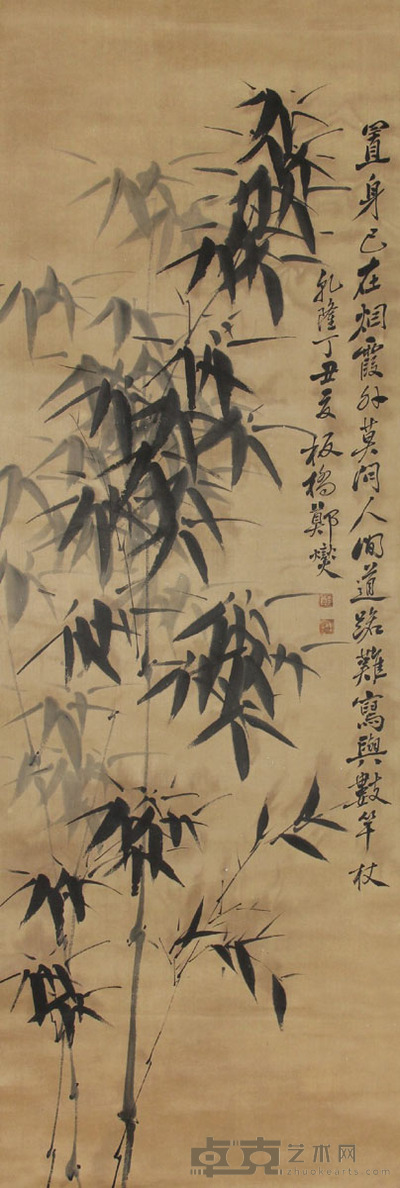 置身已在烟霞外莫问人间道路難寫與數竿杖
乾隆丁丑夏板橋鄭燮
卓克艺术网
zhuokearts.com